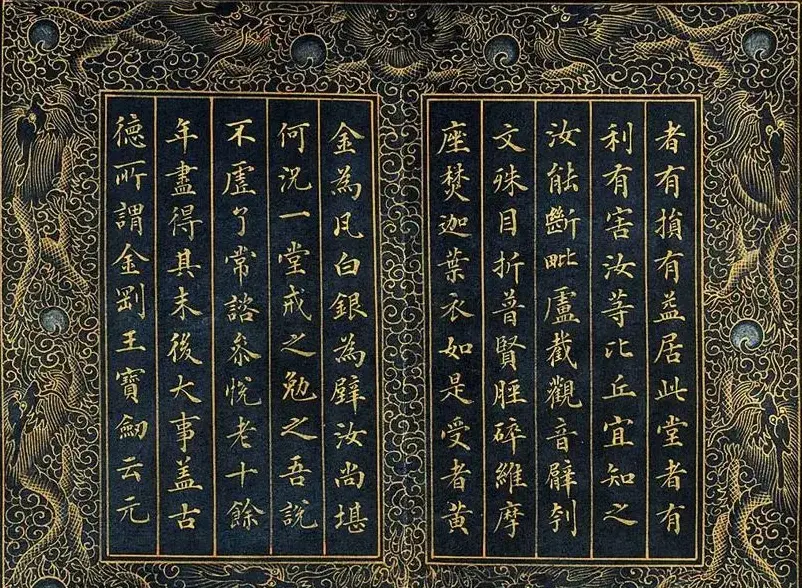 者有損有益居此堂者有
利有害汝等比丘宜知之
汝能斷毗盧截觀音臂刳
文殊目折普賢脛碎維摩
座焚迦葉衣如是受者黃
金為瓦白銀為壁汝尚堪
何況一堂戒之勉之吾說
不虛了常諮參悅老十餘
年盡得其末後大事盖古
德所謂金剛王寶劒云元